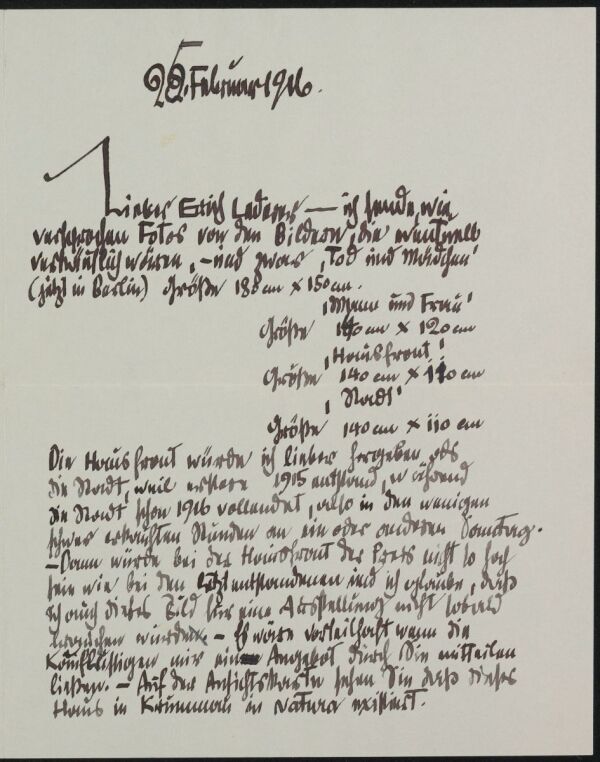 25. Februar 1916.
Lieber Erich Lederer — ich sende, wie
versprochen Fotos von den Bildern, die eventuell
verkäuflich wären, – und zwar ‚Tod und Mädchen'
(jetzt in Berlin) Größe 180 cm x 150 cm.
‚Mann und Frau'
Größe 140 cm x 120 cm
‚Hausfront'
Größe 140 cm x 110 cm
‚Stadt'
Größe 140 cm x 110 cm
Die Hausfront würde ich lieber hergeben als
die Stadt, weil erstere 1915 entstand, während
die Stadt schon 1916 vollendet, also in den wenigen
schwer erkauften Stunden an ein oder anderen Samstag.
– Dann würde bei der Hausfront der Preis nicht so hoch
sein wie bei den letztentstandenen und ich glaube, daß
ich auch dieses Bild für eine Ausstellung nicht sobald
brauchen würde. – Es wäre vorteilhaft wenn die
Kauflustigen mir ein Angebot durch Sie mitteilen
ließen. – Auf der Ansichtskarte sehen Sie daß dieses
Haus in Krummau in Natura existiert.